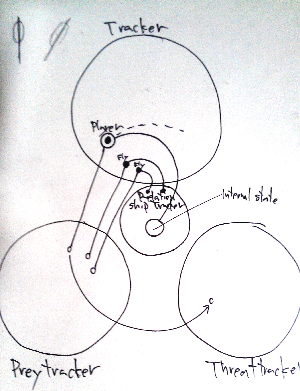 Tracker
Player
Fly
Fly
Relation
ship tracker
Internal state
Preytracker
Threattracker